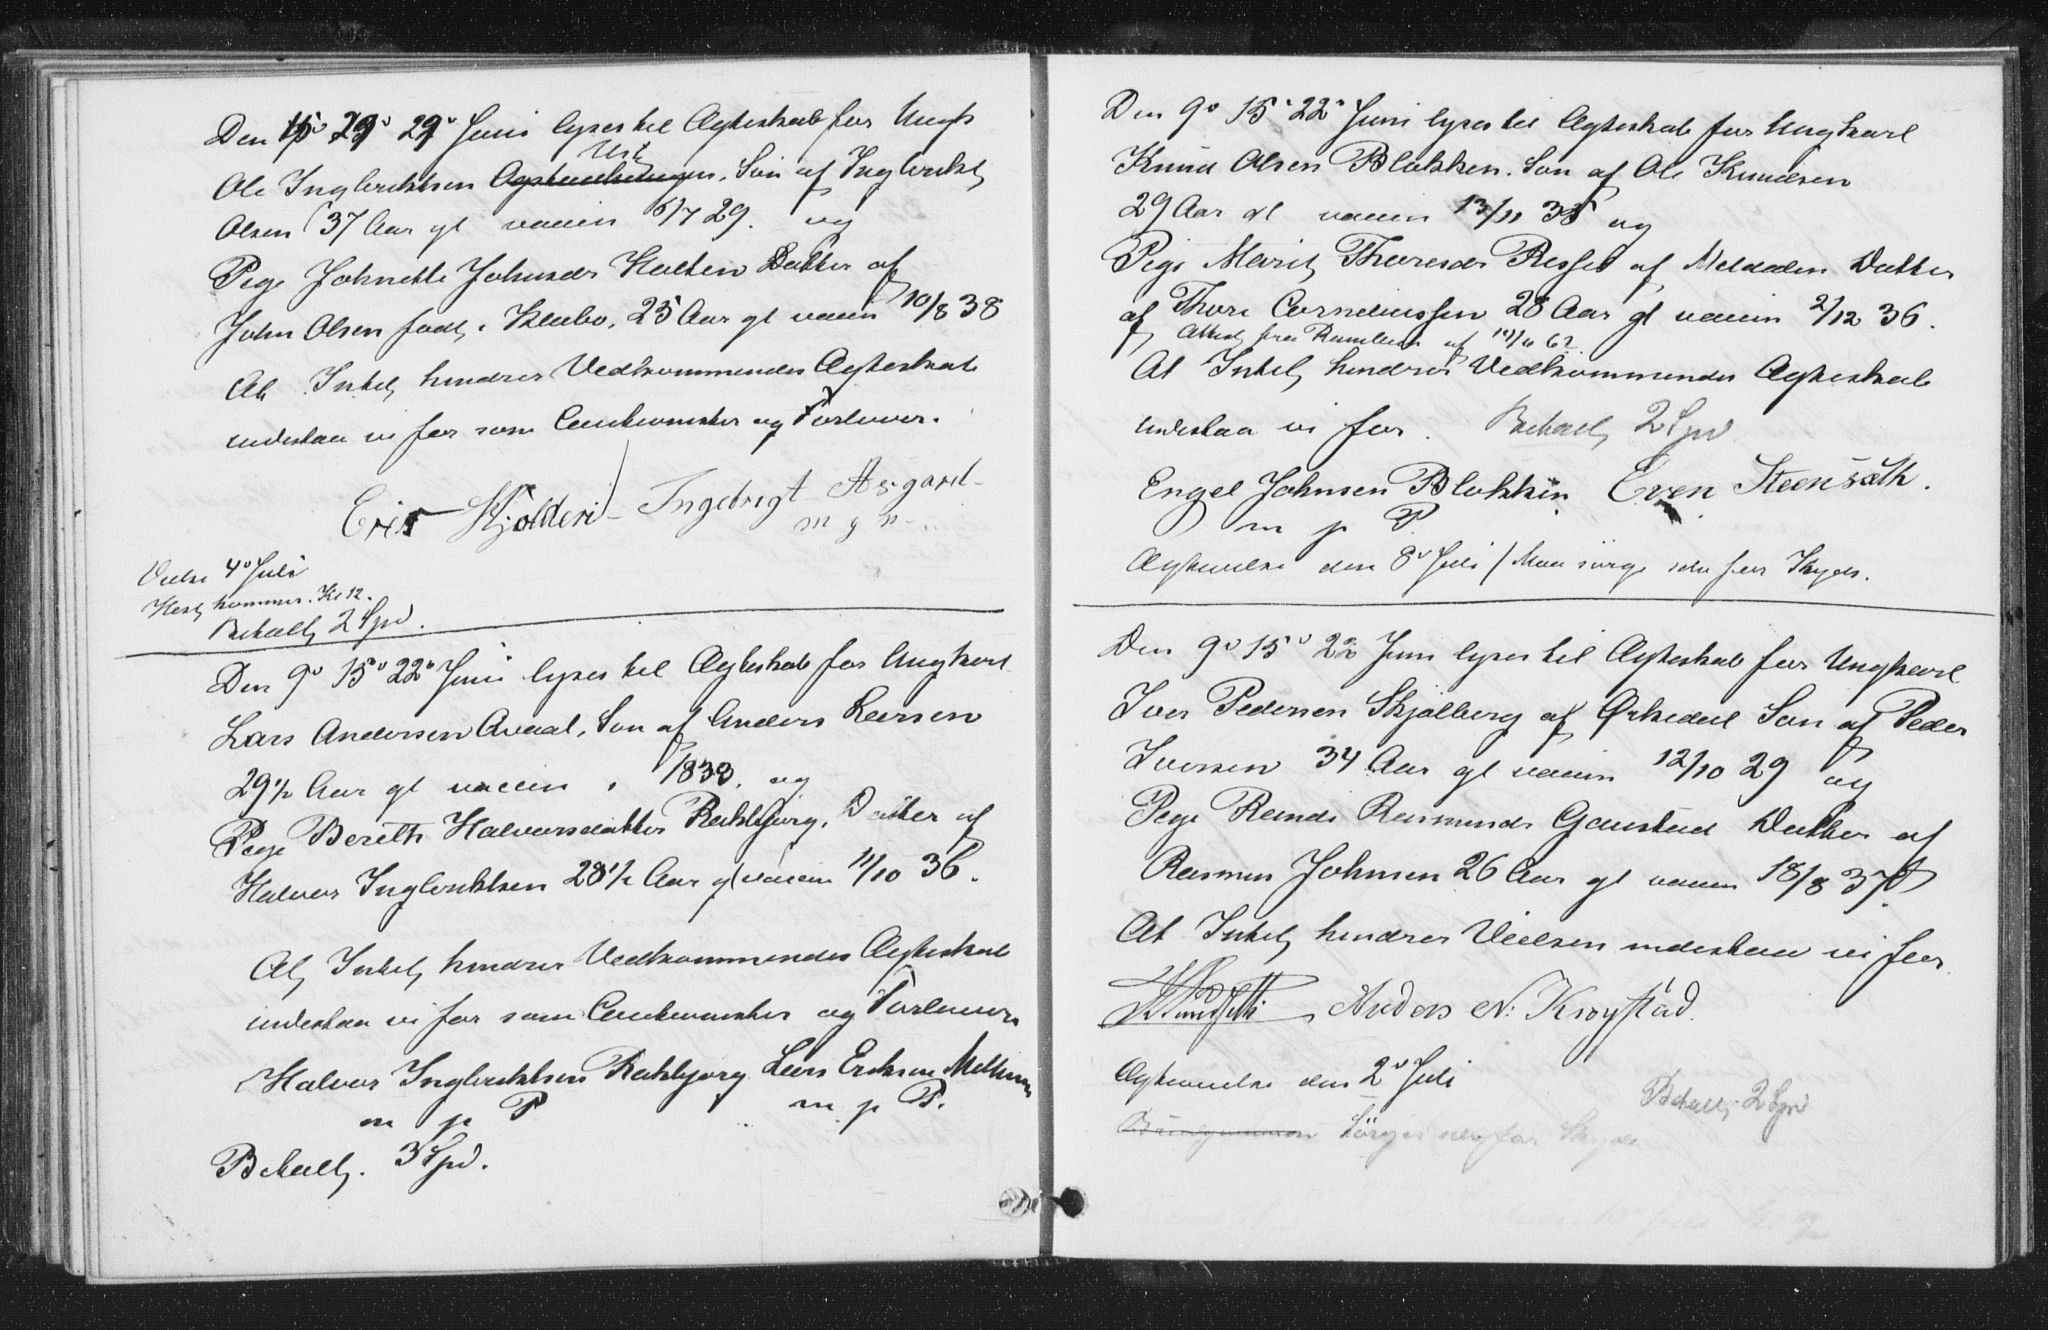 Den 15de 22de 29de Juni lyses til Ægteskab for Ungk
Ole Ingbrigtsen Søn af Ingbrigt
Olsen 37 Aar gl vaccin 6/7 29. og
Pige Johnette Johnsdr Halten Datter af
John Olsen født i Klæbo, 25 Aar gl vaccin 10/8 38
At Intet hindrer Vedkommendes Ægteskab
indestaa vi for som Cautionister og Forlover.
Eric Kjolderi Ingebrigt Asgard
Vielse 4de Juli
Hest kommer Kl 12.
Betalt 2 Spd.
Den 9de 15de 22de Juni lyses til Ægteskab for Ungkarl
Lars Andersen Aveaal, Søn af Anders Larsen
29½ Aar gl vaccin i 1833. og
Pige Berith Halvorsdatter Rekbjørg, Datter af
Halvor Ingbrigtsen 28½ Aar gl vaccin 11/10 36.
At Intet hindrer Vedkommendes Ægteskab
indestaa vi for som Cautionister og Forlovere
Halvor Ingbrigtsen Rekbjørg Lars Eriksen
m p P m p P.
Betalt. 3 Spd.
Den 9de 15de 22de Juni lyses til Ægteskab for Ungkarl
Knud Olsen Blokken. Søn af Ole Knudsen
29 Aar gl vaccin 13/11 35 og
Pige Marit Thoresdr Resset af Meldalen Datter
af Thore Corneliussen 28 Aar gl vaccin 2/12 36.
Attest fra
At Intet hindrer Vedkommendes Ægteskab
indestaa vi for. Betalt 2 Spd
Engel Johnsen Blokkin Even Steensæth.
m p P
Ægtevielse den 8de Juli / Man sørge selv for Skyds.
Den 9de 15de 22de Juni lyses til Ægteskab for Ungkarl
Iver Pedersen Skjølberg af Ørkedal Søn af Peder
Iversen 34 Aar gl vaccin 12/10 29 og
Pige Randi Rasmusdr Gaustad Datter af
Rasmus Johnsen 26 Aar gl vaccin 18/8 37.
At Intet hindrer Vielsen indestaa vi for
Anders N: Krogstad.
Ægtevielse den 2de Juli
Betalt 2 Spd
Brudgommen sørger selv for Skyds